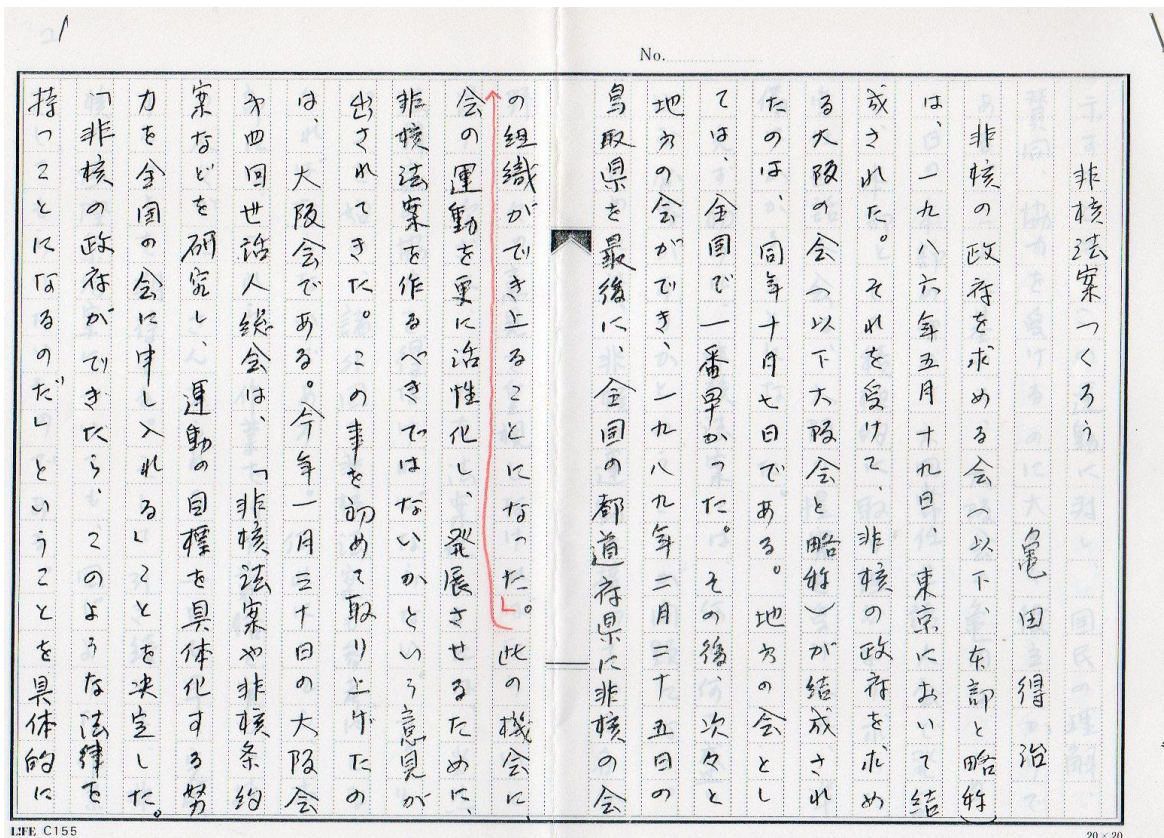 1
No.
非核法案つくろう
亀田得治
非核の政府を求める会(以下、本部と略称)
は、一九八六年五月十九日、東京において結
成された。それを受けて、非核の政府を求め
る大阪の会(以下大阪会と略称)が結成され
たのは、同年十月七日である。地方の会とし
ては、全国で一番早かった。その後、次々と
地方の会ができ、一九八九年二月二十五日の
鳥取県を最後に、全国の都道府県に非核の会
の組織ができ上ることになった。此の機会に、
会の運動を更に活性化し、発展させるために、
非核法案を作るべきではないかという意見が
出されてきた。この事を初めて取り上げたの
は、大阪会である。今年一月三十日の大阪会
第四回世話人総会は、「非核法案や非核条約
案などを研究し、運動の目標を具体化する努
力を全国の会に申し入れる」ことを決定した。
「非核の政府ができたら、このような法律を
持つことになるのだ」ということを具体的に
LIFE C155
20×20